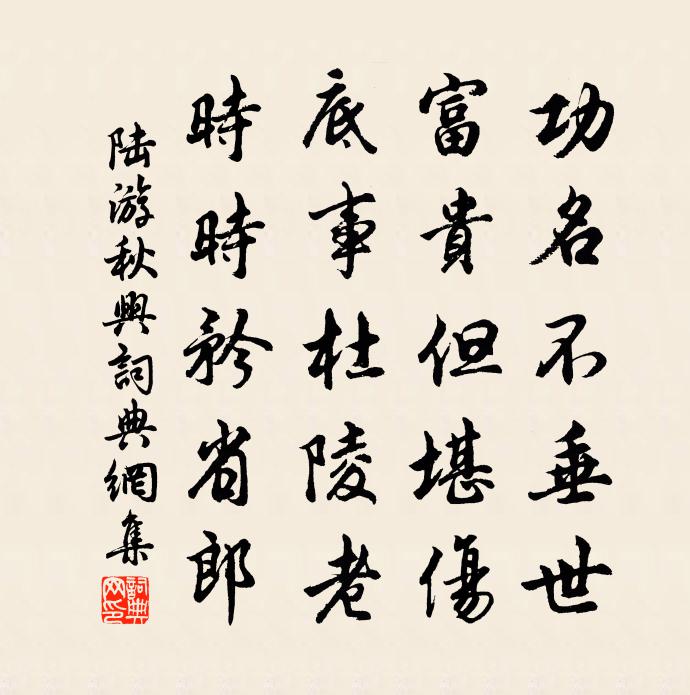 功名不垂世
富貴但堪傷
底事杜陵老
時時矜省郎
陸游秋興詞典網集
詞典網印